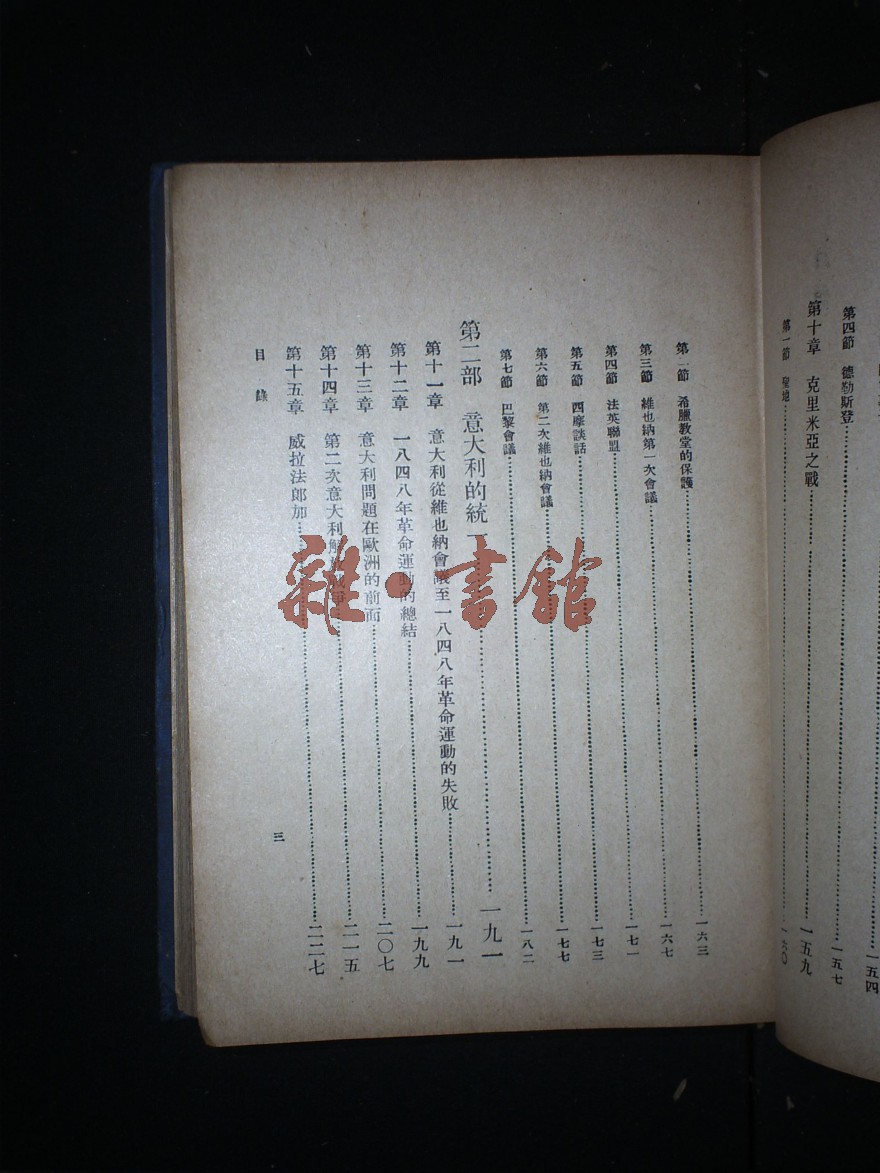 第四節 德勒斯登……一五七
第十章 克里米亞之戰……一五九
第一節 聖地……一六〇
第二節 希臘教堂的保護……一六三
第三節 維也納第一次會議……一六七
第四節 法英聯盟……一七一
第五節 西摩談話……一七三
第六節 第二次維也納會議……一七七
第七節 巴黎會議……一八二
第二部 意大利的統一……一九一
第十一章 意大利從維也納會議至一八四八年革命運動的失敗……一九一
第十二章 一八四八年革命運動的總結……一九九
第十三章 意大利問題在歐洲的前面……二〇七
第十四章 第二次意大利解放戰爭……二一五
第十五章 威拉法郎加……二二七
目錄
三
雜·書館